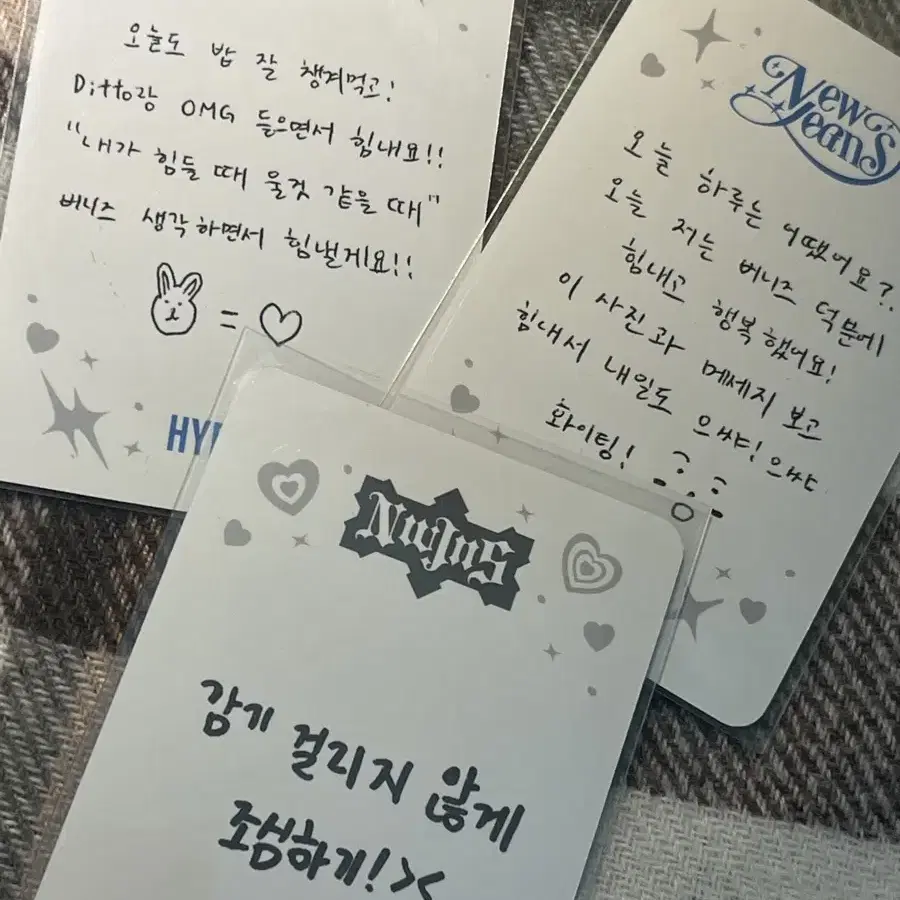 오늘도 밥 잘 챙겨먹고!
Ditto랑 OMG 들으면서 힘내요!!
"내가 힘들 때 울것 같을 때"
버니즈 생각하면서 힘낼게요!!
=
NewJeans
오늘 하루는 어땠어요?
오늘 저는 버니즈 덕분에
힘내고 행복했어요!
이 사진과 메세지 보고
힘내서 내일도 으쌰! 으쌰
화이팅!
NwJns
감기 걸리지 않게
조심하기!><